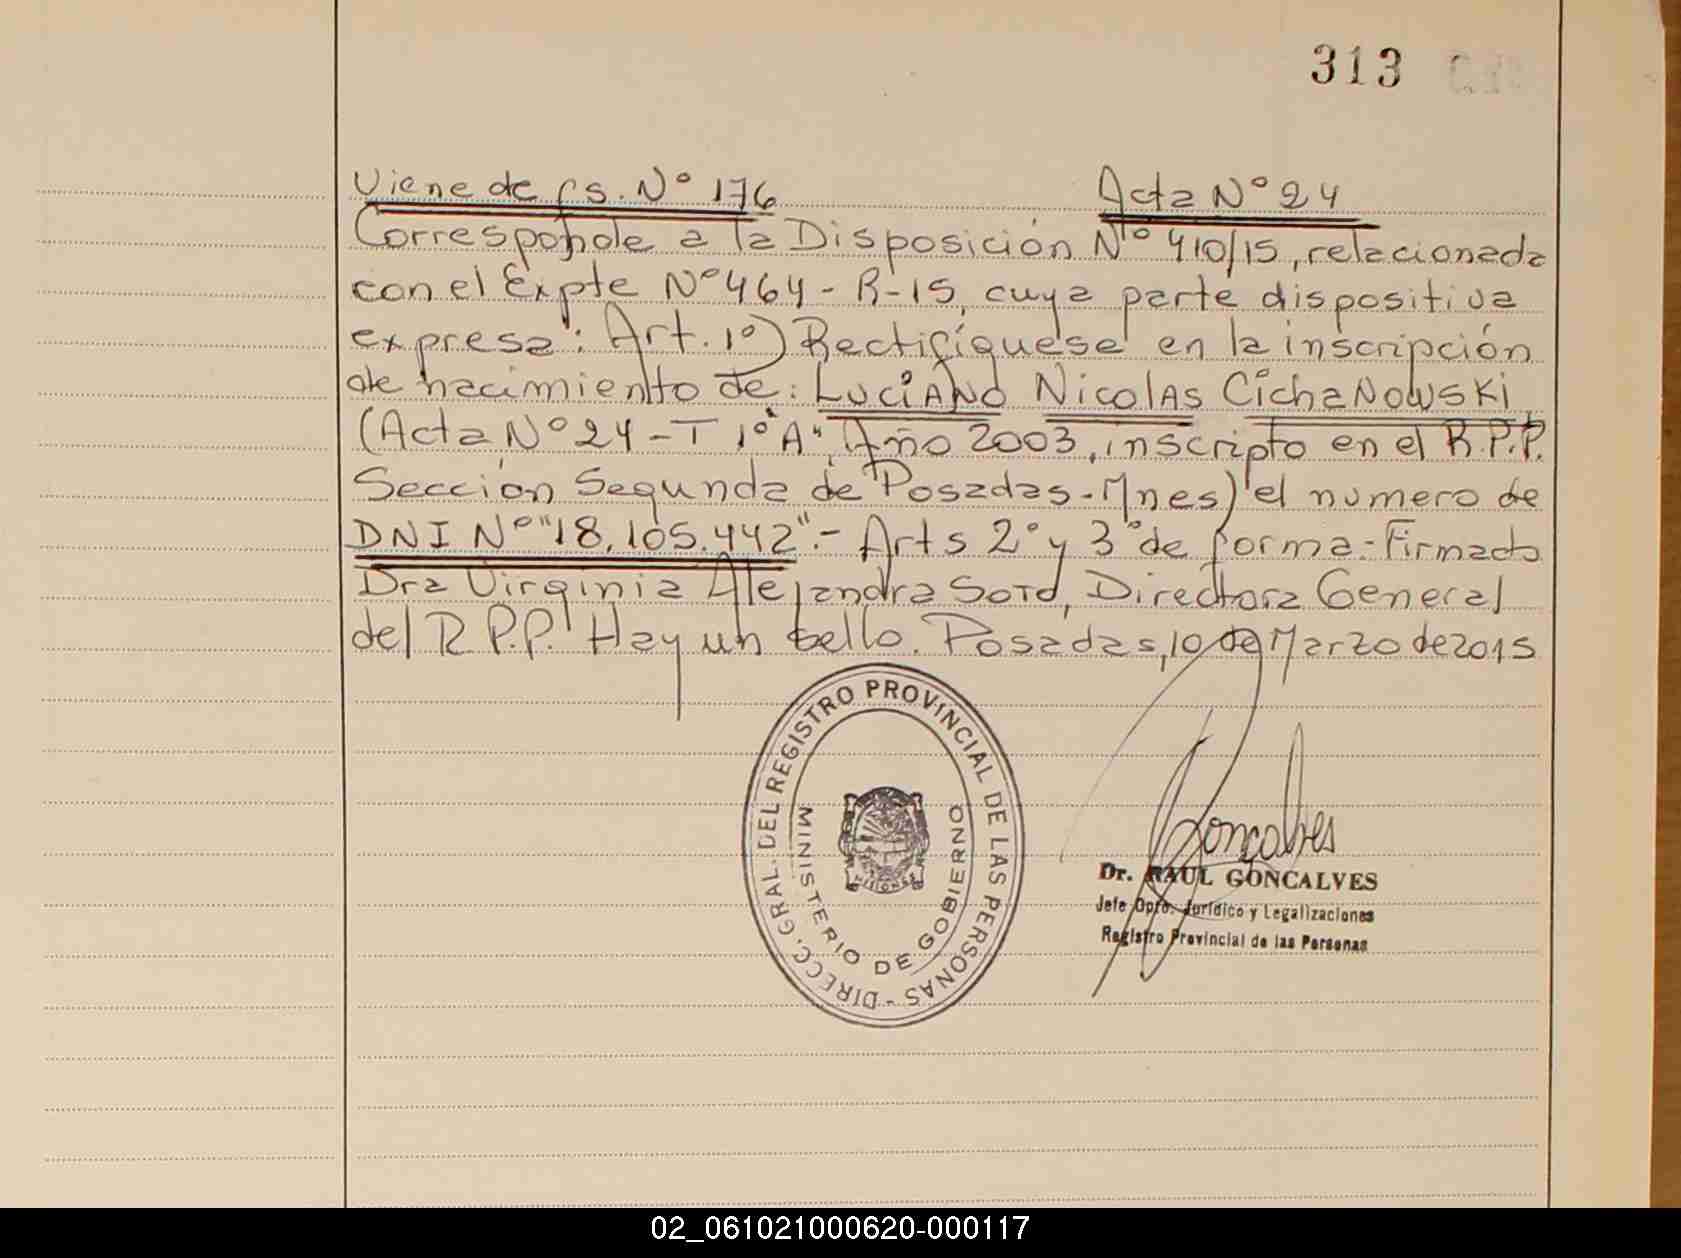 313
Viene de fs. Nº 176 Acta Nº 24
Corresponde a la Disposición Nº 410/15, relacionada
con el Expte Nº 464-R-15, cuya parte dispositiva
expresa: Art. 1º) Rectifíquese en la inscripción
de nacimiento de: LUCIANO NICOLAS CICHANOWSKI
(Acta Nº 24 - T 1º "A", Año 2003, inscripto en el R.P.P.
Sección Segunda de Posadas-Mnes) el numero de
DNI Nº "18.105.442".- Arts 2º y 3º de forma - Firmado
Dra Virginia Alejandra Soto, Directora General
del R.P.P. Hay un sello. Posadas, 10 de Marzo de 2015
DIRECC. GRAL. DEL REGISTRO PROVINCIAL DE LAS PERSONAS -
MINISTERIO DE GOBIERNO
MISIONES
Goncalves
Dr. RAUL GONCALVES
Jefe Dpto. Jurídico y Legalizaciones
Registro Provincial de las Personas
02_061021000620-000117